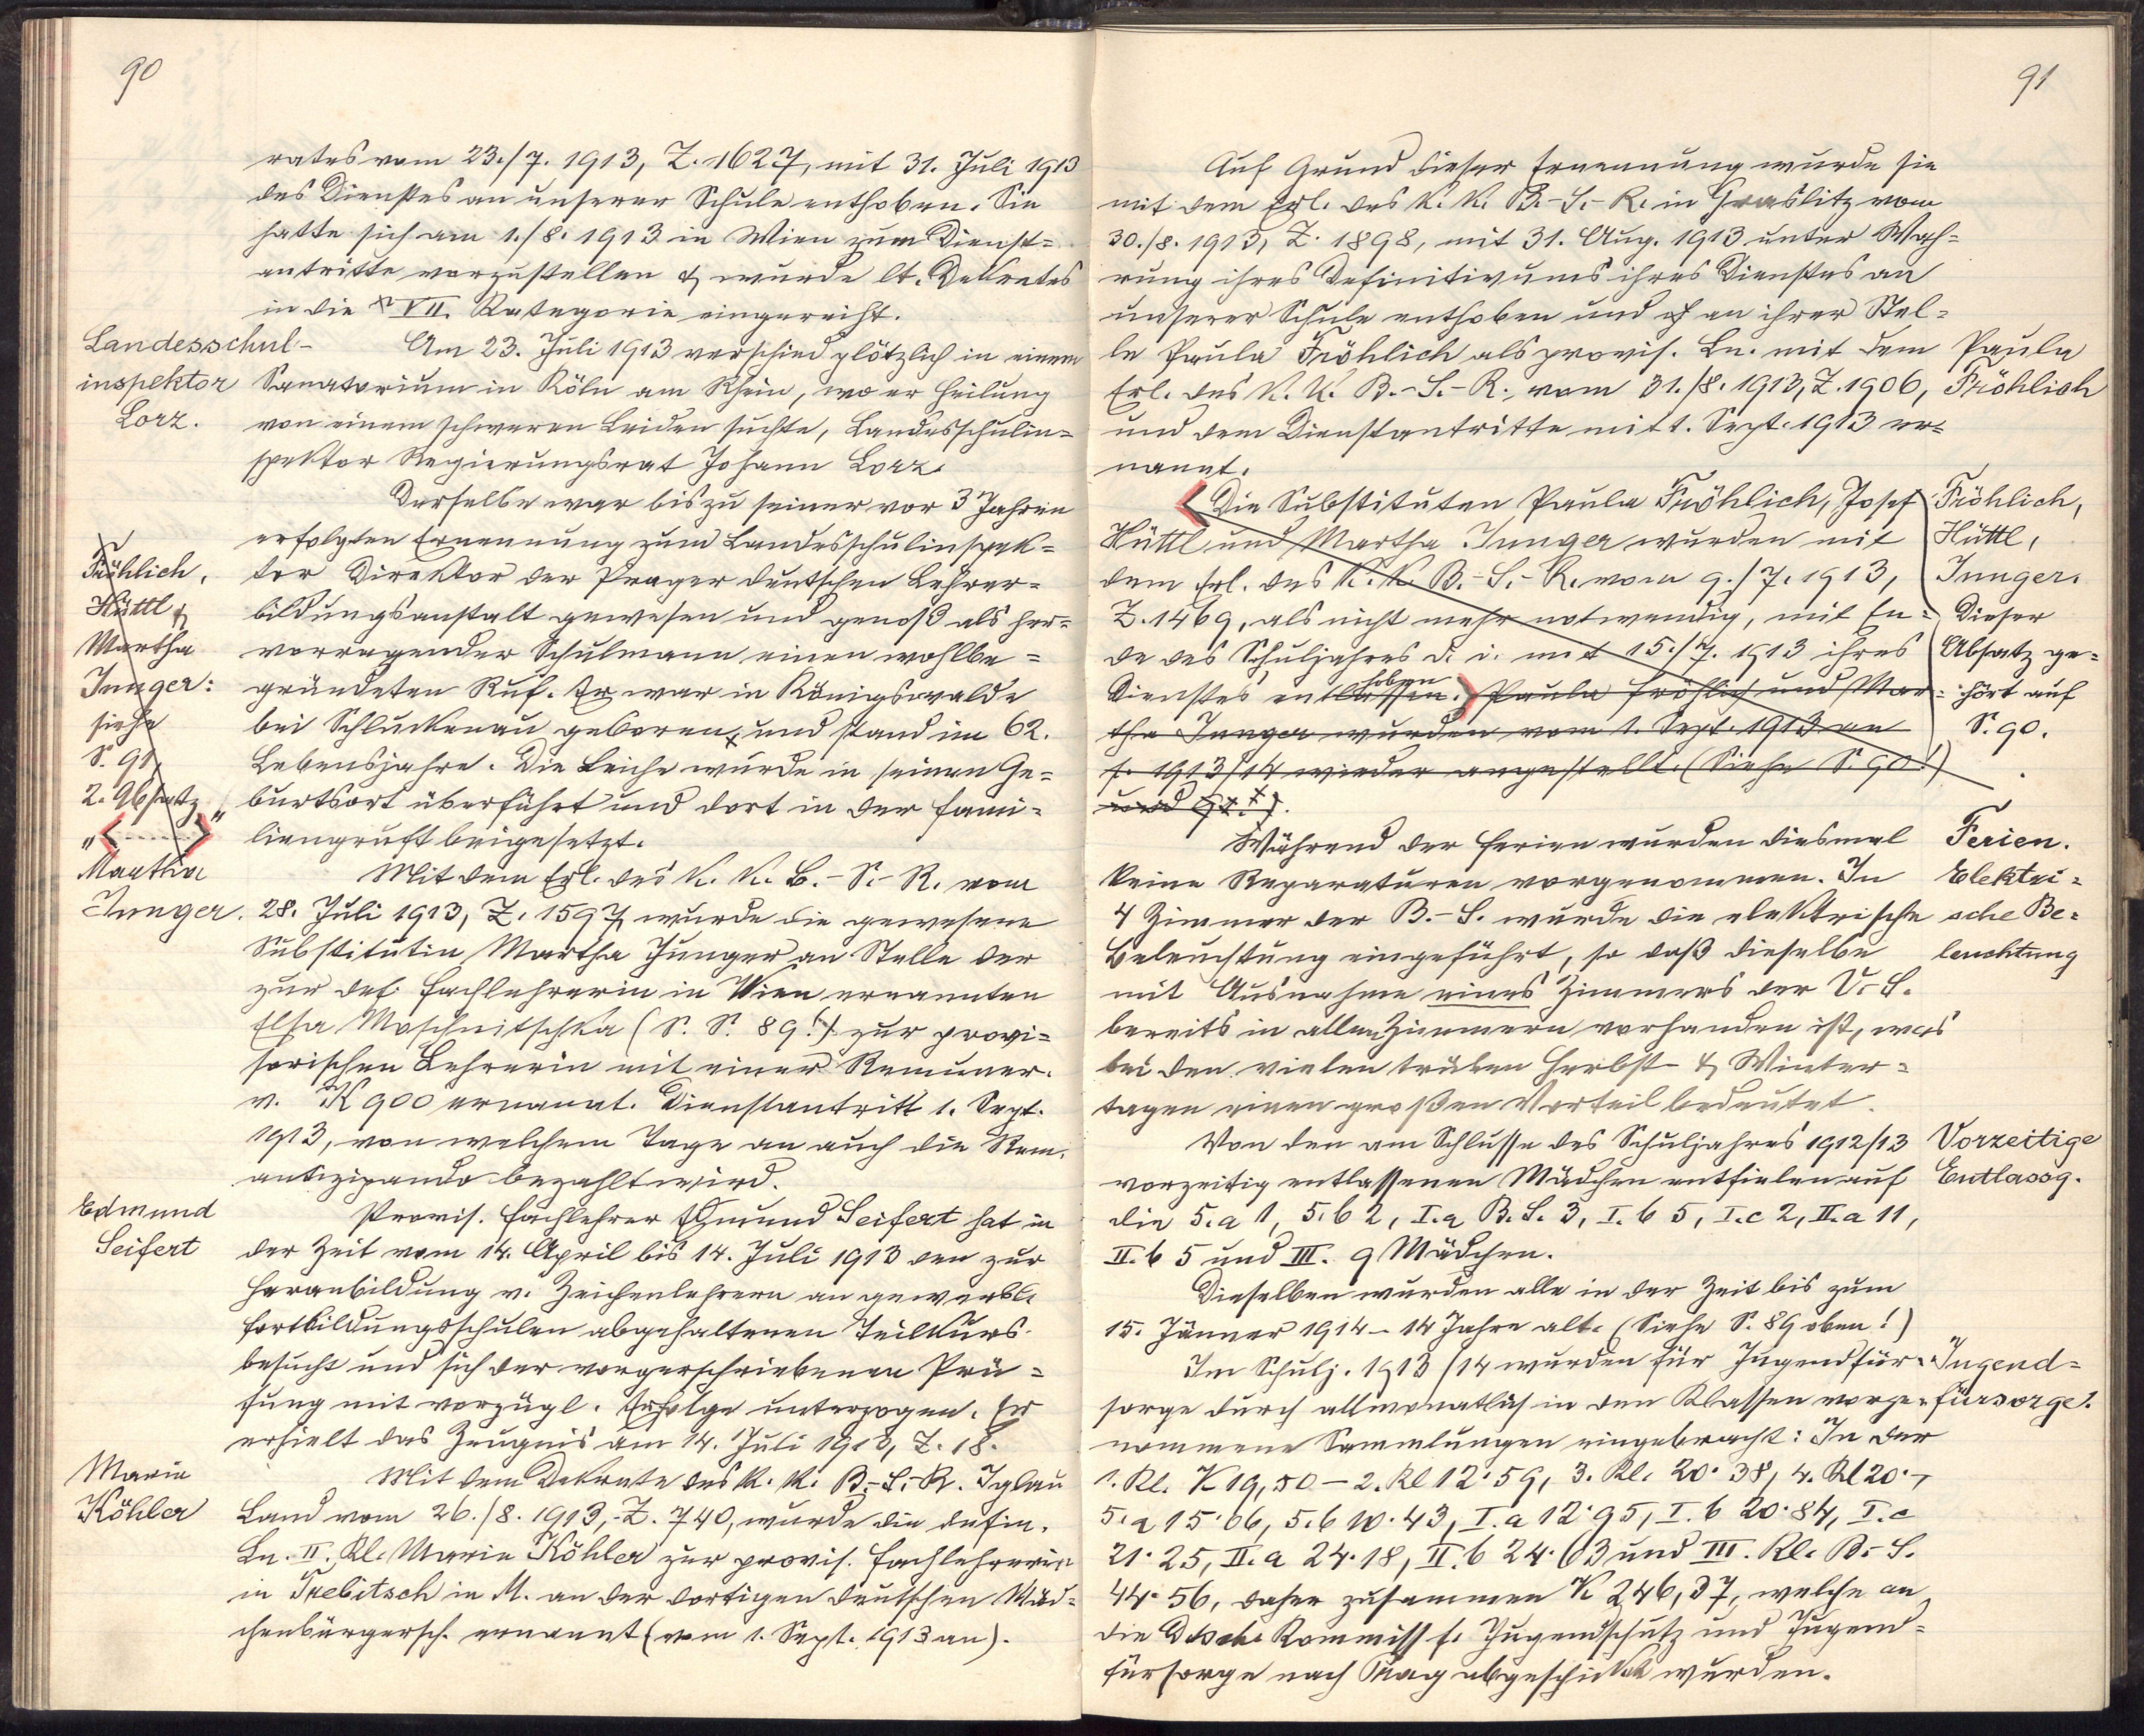 90
rates vom 23./7. 1913, Z. 1627, mit 31. Juli 1913
des Dienstes an unserer Schule enthoben. Sie
hatte sich am 1./8. 1913 in Wien zum Dienst=
antritte vorzustellen & wurde lt. Dekretes
in die VII. Kategorie eingereiht.
Landesschul-
inspektor
Lorz.
Am 23. Juli 1913 verschied plötzlich in einem
Sanatorium in Köln am Rhein, wo er Heilung
von einem schweren Leiden suchte, Landesschulin=
spektor Regierungsrat Johann Lorz.
Derselbe war bis zu seiner vor 3 Jahren
erfolgten Ernennung zum Landesschulinspek=
tor Direktor der Prager deutschen Lehrer=
bildungsanstalt gewesen und genoß als her=
vorragender Schulmann einen wohlbe=
gründeten Ruf. Er war in Königswalde
bei Schluckenau geboren, und stand im 62.
Lebensjahre. Die Leiche wurde in seinen Ge=
burtsort überführt und dort in der Fami=
liengruft beigesetzt.
Fröhlich,
Hüttl &
Martha
Junger:
siehe
S. 91,
2. Absatz
"< ------ >"
Martha
Junger.
Mit dem Erl. des k. k. B.-S.-R. vom
28. Juli 1913, Z. 1597, wurde die gewesene
Substitutin Martha Junger an Stelle der
zur def. Fachlehrerin in Wien ernannten
Elsa Maschnitschka (S. S. 89!) zur provi=
sorischen Lehrerin mit einer Remuner.
v. K 900 ernannt. Dienstantritt 1. Sept.
1913, von welchem Tage an auch die Rem.
antizipando bezahlt wird.
Edmund
Seifert
Provis. Fachlehrer Edmund Seifert hat in
der Zeit vom 14. April bis 14. Juli 1913 den zur
Heranbildung v. Zeichenlehrern an gewerbl.
Fortbildungsschulen abgehaltenen Teilkurs
besucht und sich der vorgeschriebenen Prü=
fung mit vorzügl. Erfolge unterzogen. Er
erhielt das Zeugnis am 14. Juli 1913, Z. 18.
Marie
Köhler
Mit dem Dekrete des k. k. B.-S.-R. Iglau
Land vom 26./8. 1913, Z. 740, wurde die defin.
Ln. II. Kl. Marie Köhler zur provis. Fachlehrerin
in Trebitsch in M. an der dortigen deutschen Mäd=
chenbürgersch. ernannt (vom 1. Sept. 1913 an).
91
Auf Grund dieser Ernennung wurde sie
mit dem Erl. des k. k. B.-S.-R. in Graslitz vom
30./8. 1913, Z. 1898, mit 31. Aug. 1913 unter Wah=
rung ihres Definitivums ihres Dienstes an
unserer Schule enthoben und an ihrer Stel=
le Paula Fröhlich als provis. Ln. mit dem
Erl. des k. k. B.-S.-R. vom 31./8. 1913, Z. 1906,
und dem Dienstantritte mit 1. Sept. 1913 er=
nannt.
Paula
Fröhlich
Die Substituten Paula Fröhlich, Josef
Hüttl und Martha Junger wurden mit
dem Erl. des k. k. B.-S.-R. vom 9./7. 1913,
Z. 1469, als nicht mehr notwendig, mit En=
de des Schuljahres d. i. mit 15./7. 1913 ihres
hoben
Dienstes entlassen. Paula Fröhlich und Mar=
tha Junger wurden vom 1. Sept. 1913 an
f. 1913/14 wieder angestellt. (Siehe S. 90!)
Fröhlich,
Hüttl,
Junger.
Dieser
Absatz ge=
hört auf
S. 90.
Während der Ferien wurden diesmal
keine Reparaturen vorgenommen. In
4 Zimmer der B.-S. wurde die elektrische
Beleuchtung eingeführt, so daß dieselbe
mit Ausnahme eines Zimmers der V.-S.
bereits in allen Zimmern vorhanden ist, was
bei den vielen trüben Herbst- & Winter=
tagen einen großen Vorteil bedeutet.
Ferien.
Elektri=
sche Be=
leuchtung
Von den am Schlusse des Schuljahres 1912/13
vorzeitig entlassenen Mädchen entfielen auf
die 5. a 1, 5. b 2, I. a B. S. 3, I. b 5, I. c 2, II. a 11,
II. b 5 und III. 9 Mädchen.
Vorzeitige
Entlassg.
Dieselben wurden alle in der Zeit bis zum
15. Jänner 1914 - 14 Jahre alt. (Siehe S. 89 oben!)
Im Schulj. 1913/14 wurden für Jugendfür=
sorge durch allmonatlich in den Klassen vorge=
nommene Sammlungen eingebracht: In der
1. Kl. K 19,50 - 2. Kl 12·59, 3. Kl. 20·38, 4. Kl 20·-,
5. a 15·06, 5. b 10·43, I. a 12·95, I. b 20·84, I. c
21·25, II. a 24·18, II. b 24·63 und III. Kl. B.-S.
44·56, daher zusammen K 246,37, welche an
die Dtsche Kommiss f. Jugendschutz und Jugend=
fürsorge nach Prag abgeschickt wurden.
Jugend=
fürsorge.